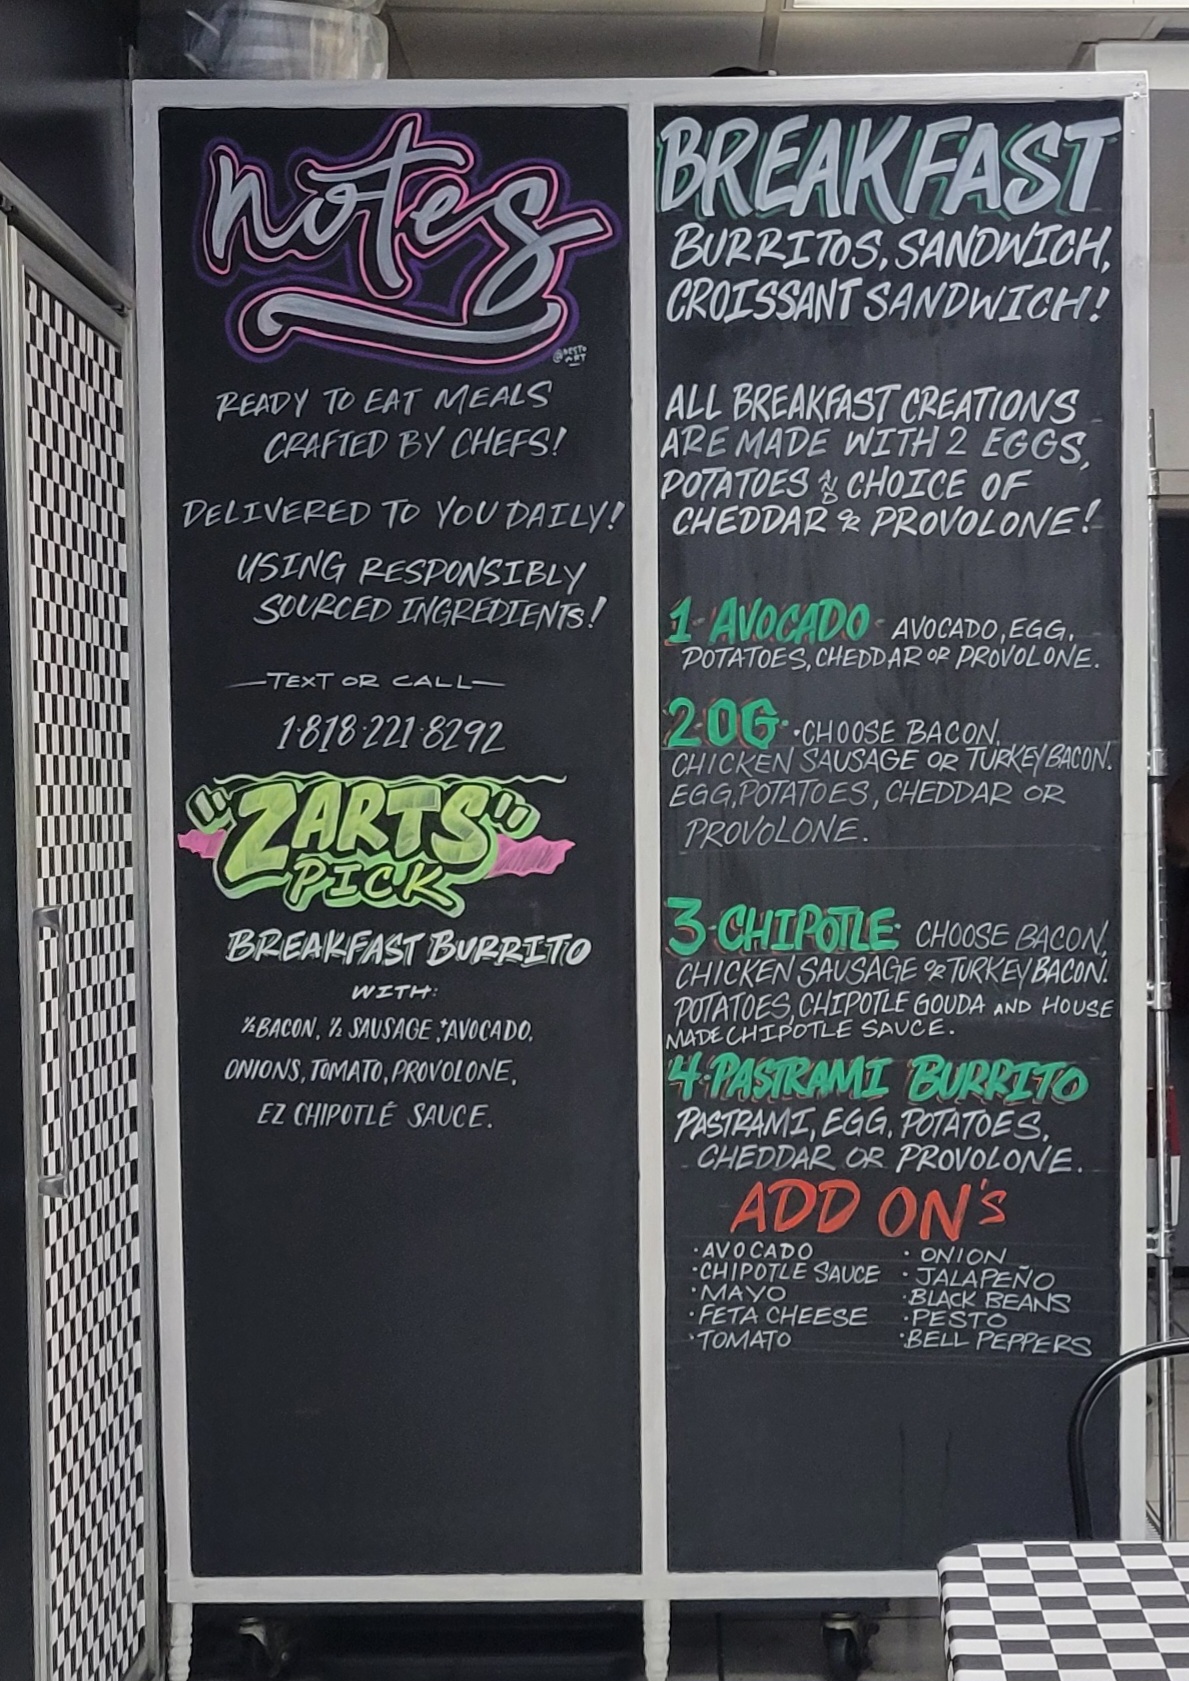 notes
@DESTO
ART
READY TO EAT MEALS
CRAFTED BY CHEFS!
DELIVERED TO YOU DAILY!
USING RESPONSIBLY
SOURCED INGREDIENTS!
—TEXT OR CALL—
1·818·221·8292
"ZARTS"
PICK
BREAKFAST BURRITO
WITH:
½ BACON, ½ SAUSAGE, +AVOCADO,
ONIONS, TOMATO, PROVOLONE,
EZ CHIPOTLÉ SAUCE.
BREAKFAST
BURRITOS, SANDWICH,
CROISSANT SANDWICH!
ALL BREAKFAST CREATIONS
ARE MADE WITH 2 EGGS,
POTATOES AND CHOICE OF
CHEDDAR OR PROVOLONE!
1·AVOCADO· AVOCADO, EGG,
POTATOES, CHEDDAR OR PROVOLONE.
2·OG· ·CHOOSE BACON,
CHICKEN SAUSAGE OR TURKEY BACON.
EGG, POTATOES, CHEDDAR OR
PROVOLONE.
3·CHIPOTLE· CHOOSE BACON,
CHICKEN SAUSAGE OR TURKEY BACON.
POTATOES, CHIPOTLE GOUDA AND HOUSE
MADE CHIPOTLE SAUCE.
4·PASTRAMI BURRITO
PASTRAMI, EGG, POTATOES,
CHEDDAR OR PROVOLONE.
ADD ON'S
·AVOCADO
·CHIPOTLE SAUCE
·MAYO
·FETA CHEESE
·TOMATO
·ONION
·JALAPEÑO
·BLACK BEANS
·PESTO
·BELL PEPPERS